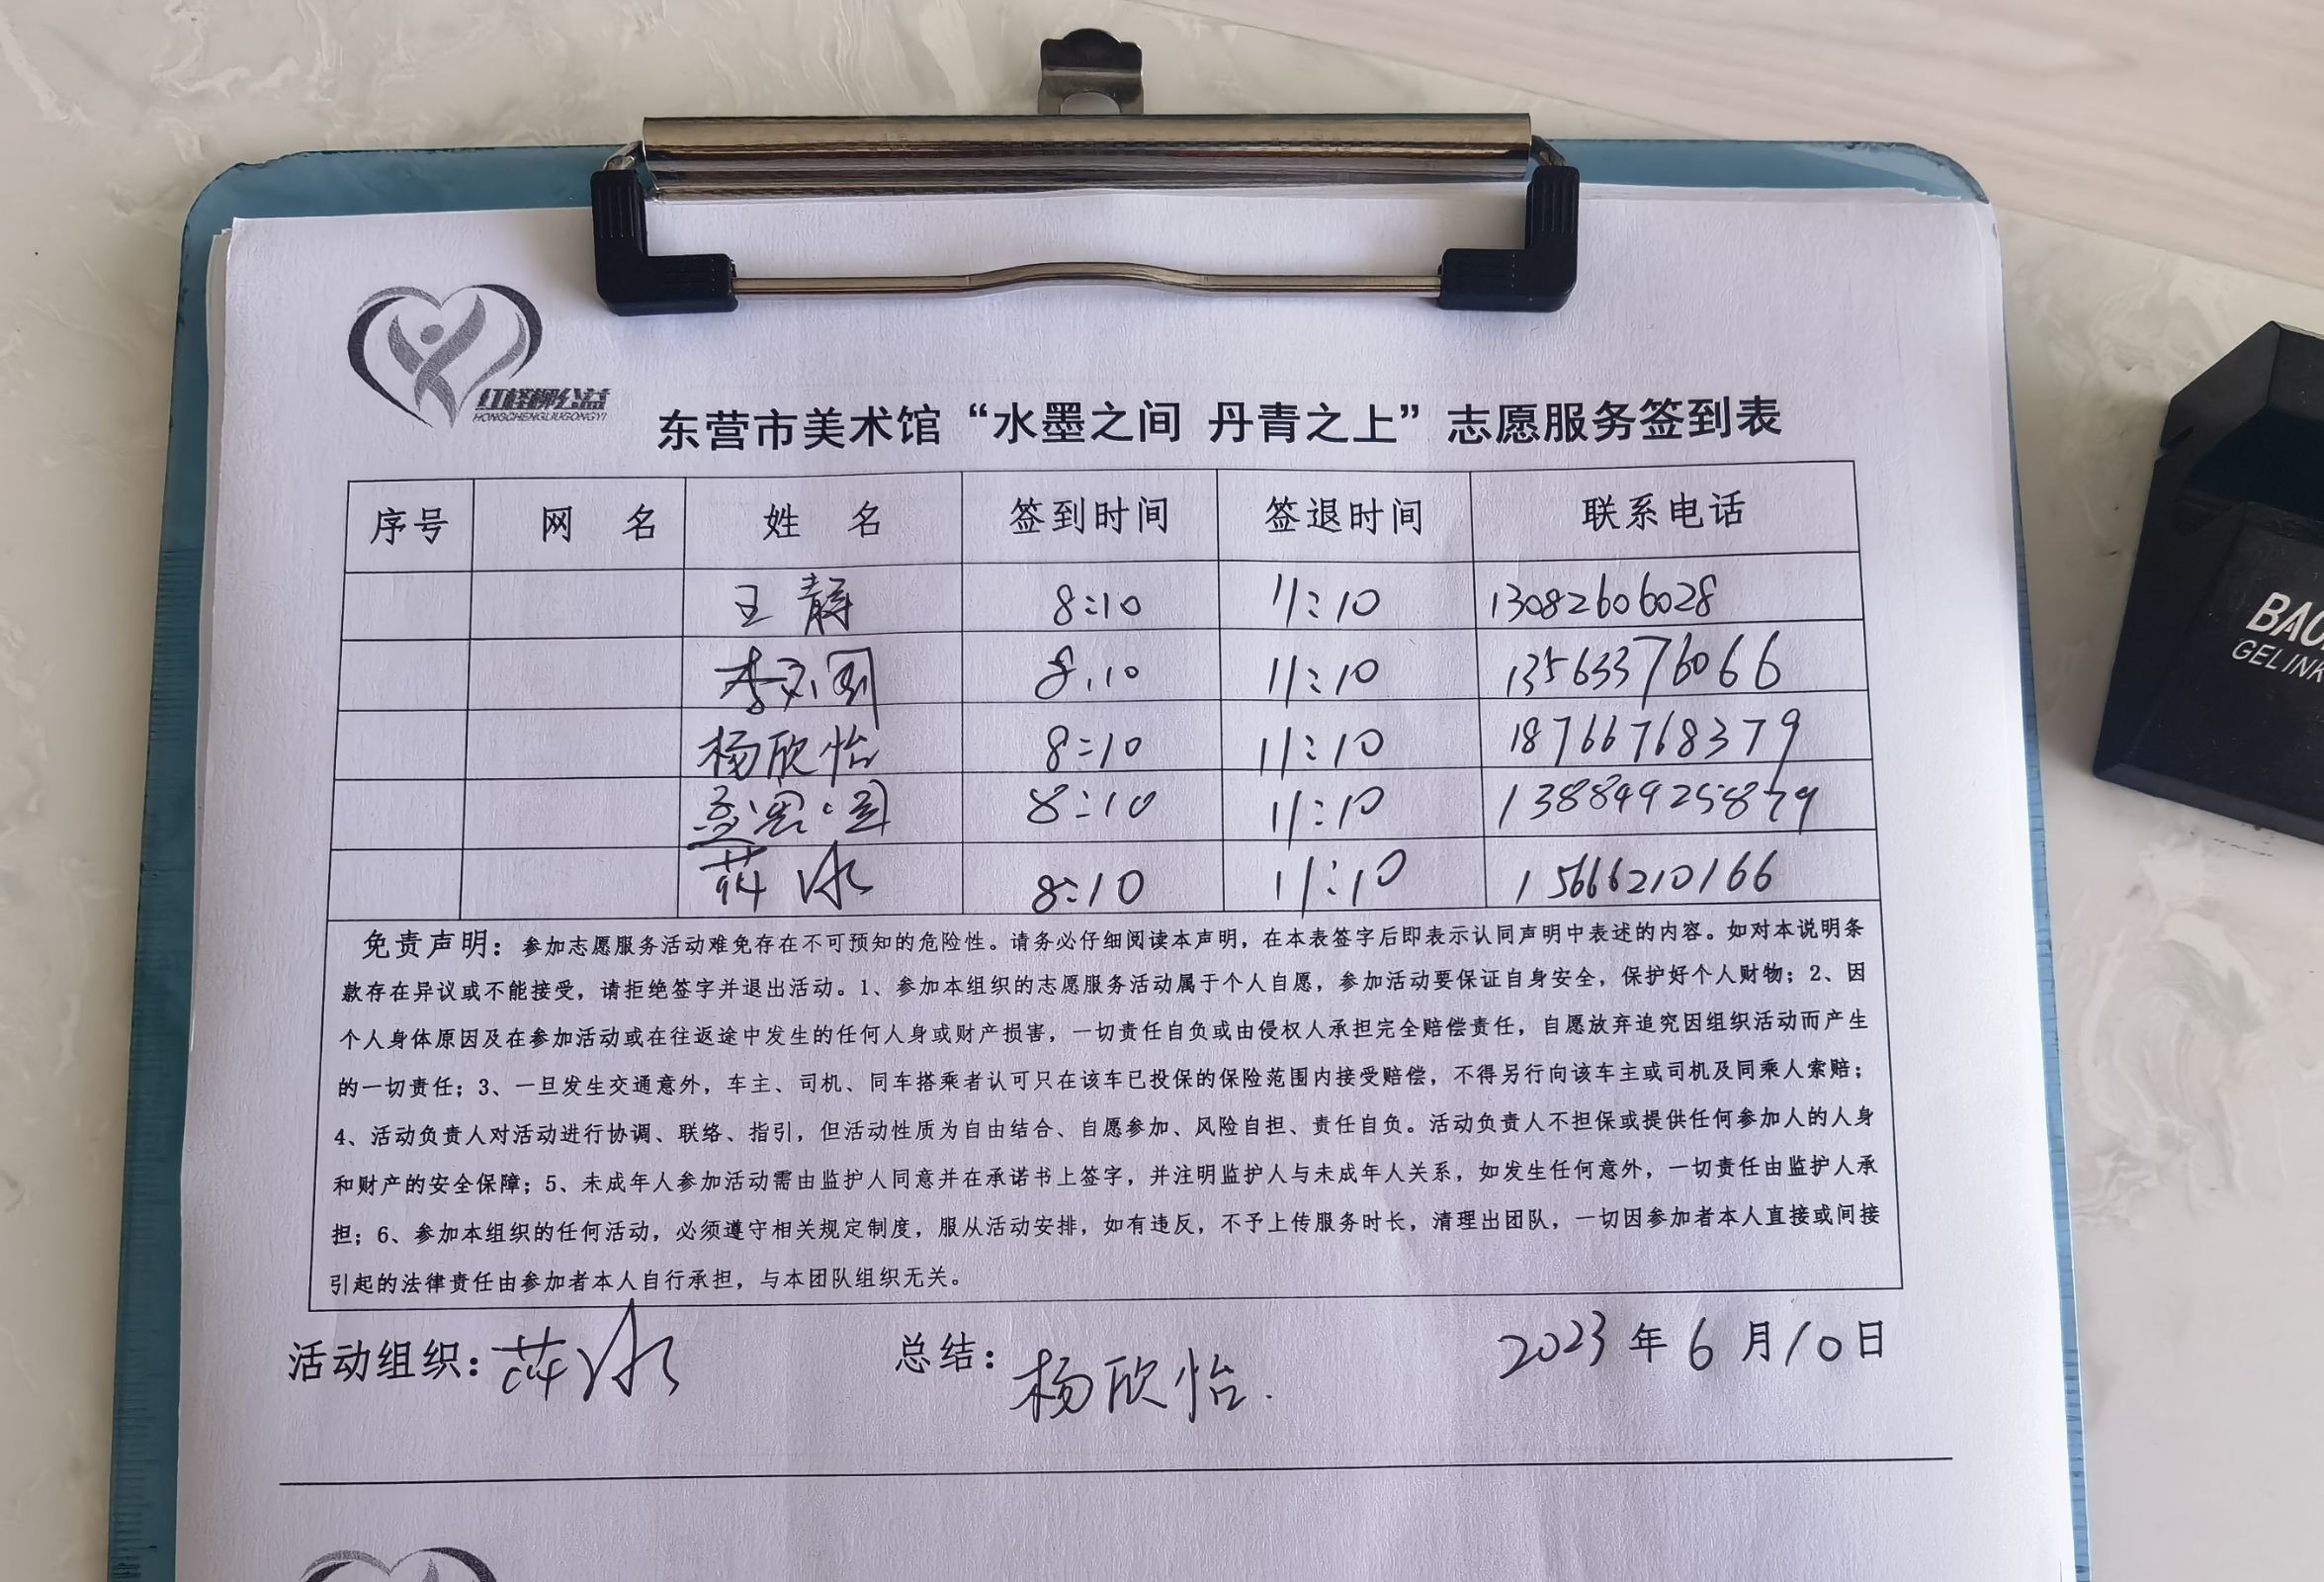 红柽柳公益
HONGCHENGLIUGONGYI
东营市美术馆“水墨之间 丹青之上”志愿服务签到表
序号 网 名 姓 名 签到时间 签退时间 联系电话
王静 8:10 11:10 13082606028
8:10 11:10 13563376066
杨欣怡 8:10 11:10 18766768379
8:10 11:10
8:10 11:10 15666210166
免责声明：参加志愿服务活动难免存在不可预知的危险性。请务必仔细阅读本声明，在本表签字后即表示认同声明中表述的内容。如对本说明条
款存在异议或不能接受，请拒绝签字并退出活动。1、参加本组织的志愿服务活动属于个人自愿，参加活动要保证自身安全，保护好个人财物；2、因
个人身体原因及在参加活动或在往返途中发生的任何人身或财产损害，一切责任自负或由侵权人承担完全赔偿责任，自愿放弃追究因组织活动而产生
的一切责任；3、一旦发生交通意外，车主、司机、同车搭乘者认可只在该车已投保的保险范围内接受赔偿，不得另行向该车主或司机及同乘人索赔；
4、活动负责人对活动进行协调、联络、指引，但活动性质为自由结合、自愿参加、风险自担、责任自负。活动负责人不担保或提供任何参加人的人身
和财产的安全保障；5、未成年人参加活动需由监护人同意并在承诺书上签字，并注明监护人与未成年人关系，如发生任何意外，一切责任由监护人承
担；6、参加本组织的任何活动，必须遵守相关规定制度，服从活动安排，如有违反，不予上传服务时长，清理出团队，一切因参加者本人直接或间接
引起的法律责任由参加者本人自行承担，与本团队组织无关。
活动组织： 总结：杨欣怡. 2023年6月10日
GELINK